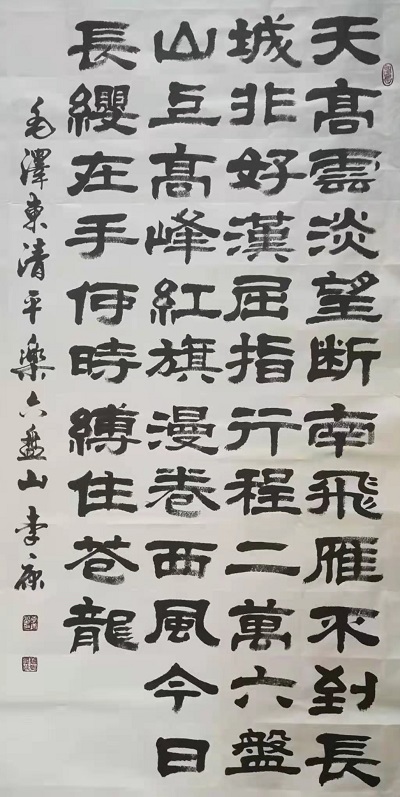 天髙雲淡望断南飛雁不到長
城非好漢屈指行程二萬六盤
山上髙峰紅旗漫卷西風今日
長纓在手何時縛住苍龍
毛澤東清平樂六盘山 李